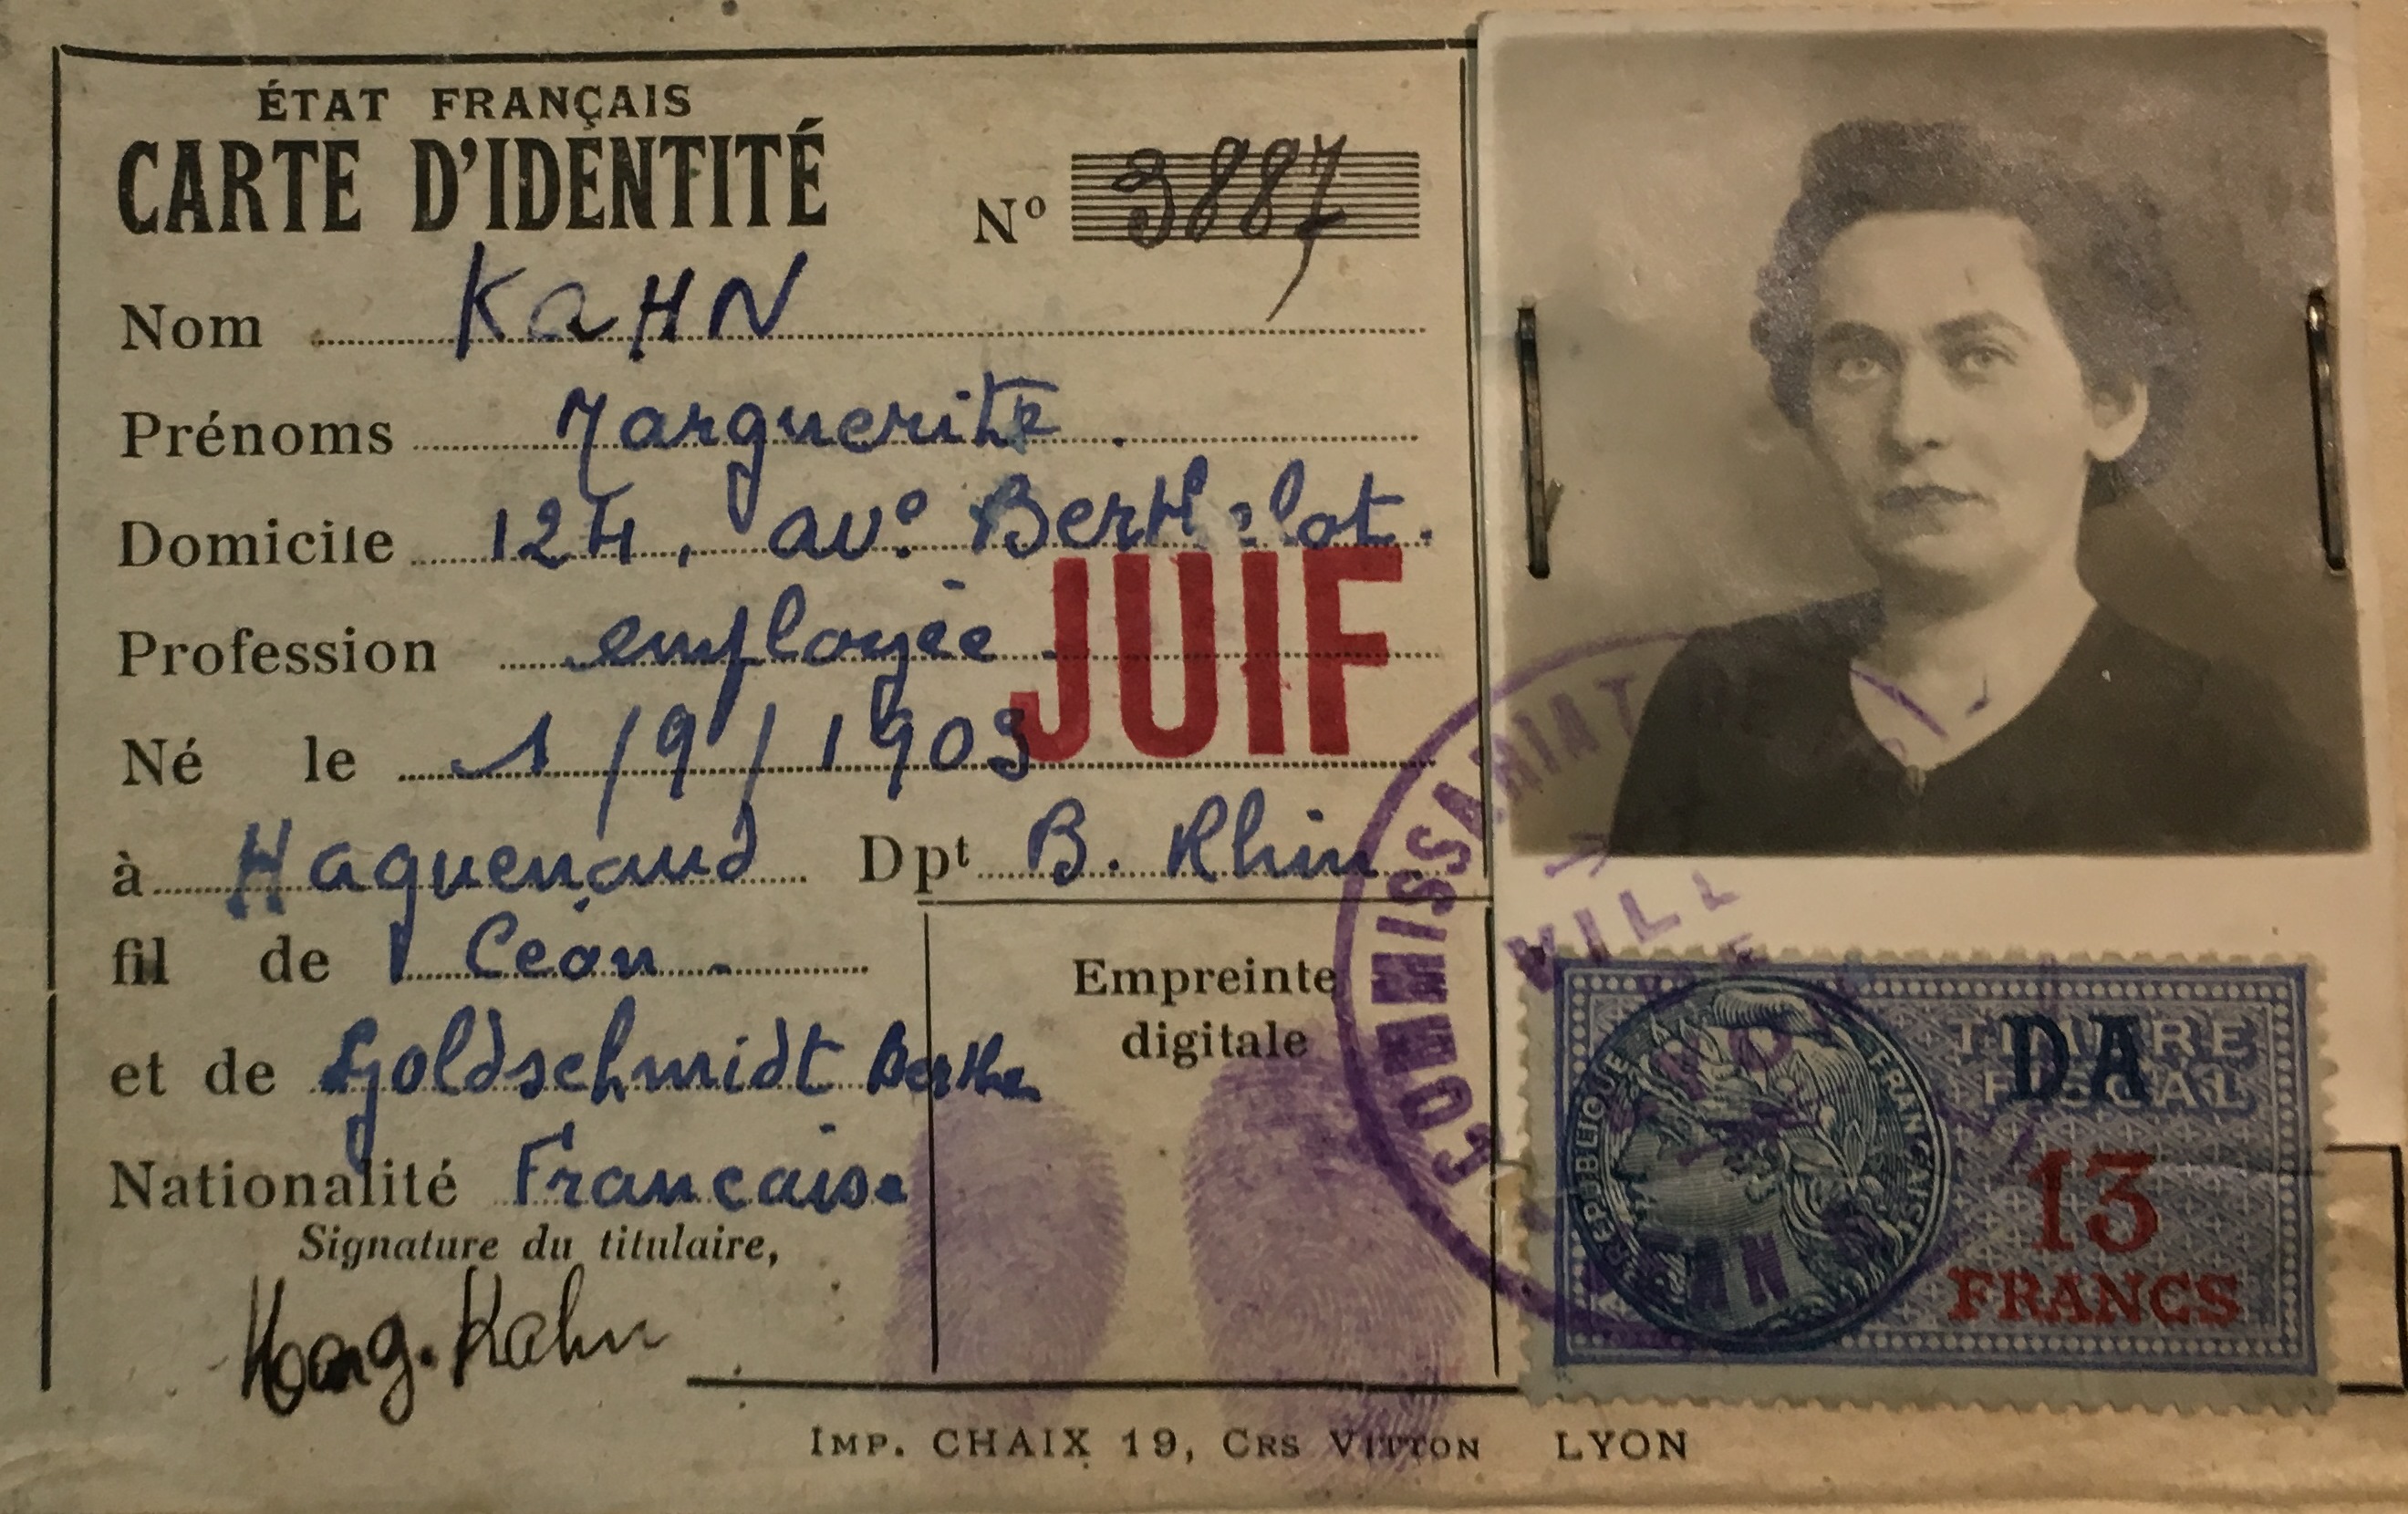 ÉTAT FRANÇAIS
CARTE D'IDENTITÉ
Nº 3887
Nom KaHN
Prénoms Marguerite.
Domicile 124, avº Berthelot.
Profession employée
JUIF
Né le 1/9/1903
à Haguenaud Dpt B. Rhin.
fil de Céon
et de Goldschmidt Berthe
Nationalité Francaise
Signature du titulaire,
Marg. Kahn
Empreinte
digitale
COMMISSARIAT DE
VILL
RÉPUBLIQUE FRANÇAISE
TIMBRE
FISCAL
DA
13
FRANCS
IMP. CHAIX 19, CRS VITTON LYON